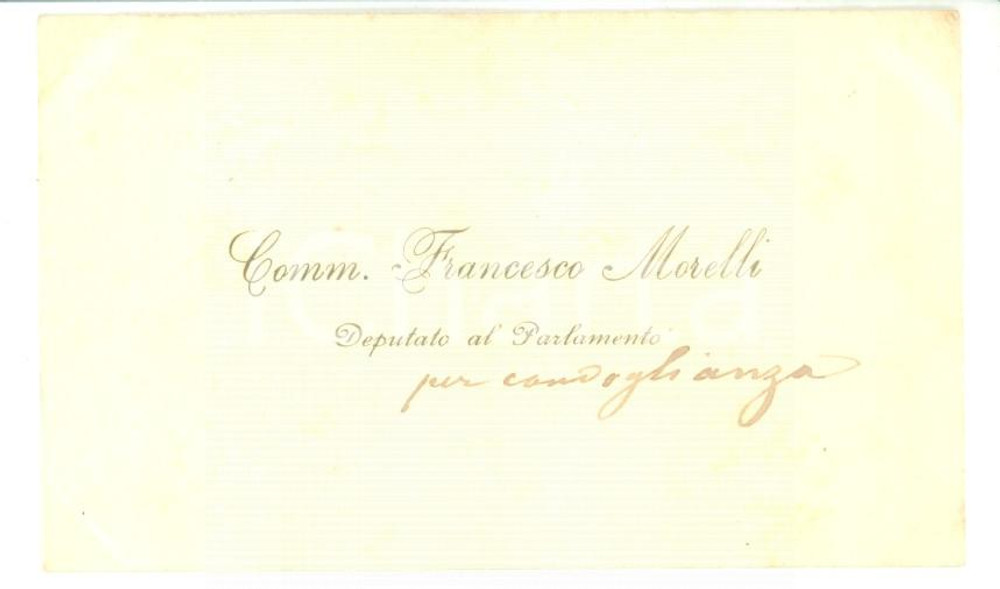 Comm. Francesco Morelli
Deputato al Parlamento
per condoglianza